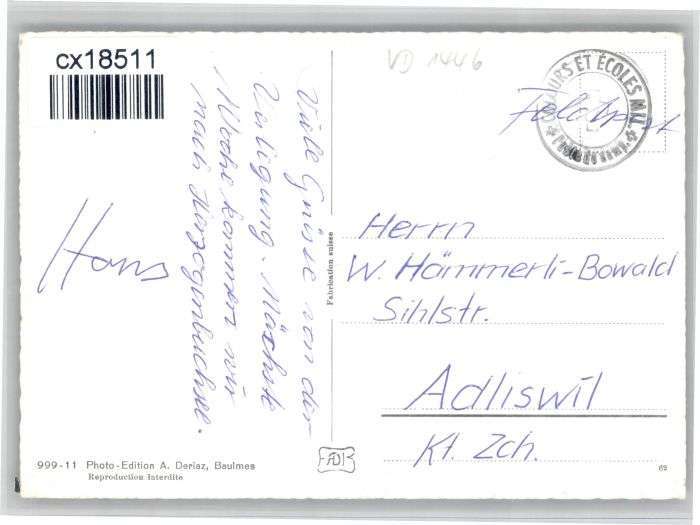 cx18511
VD 1446
COURS ET ÉCOLES MIL.
Feldpost
Viele Grüsse von der
Verlegung. Nächste
Woche kommen wir
nach Herzogenbuchsee.
Hans
Fabrication suisse
Herrn
W. Hämmerli-Bowald
Sihlstr.
Adliswil
Kt. Zch.
999-11 Photo-Edition A. Deriaz, Baulmes
Reproduction Interdite
ADB
69